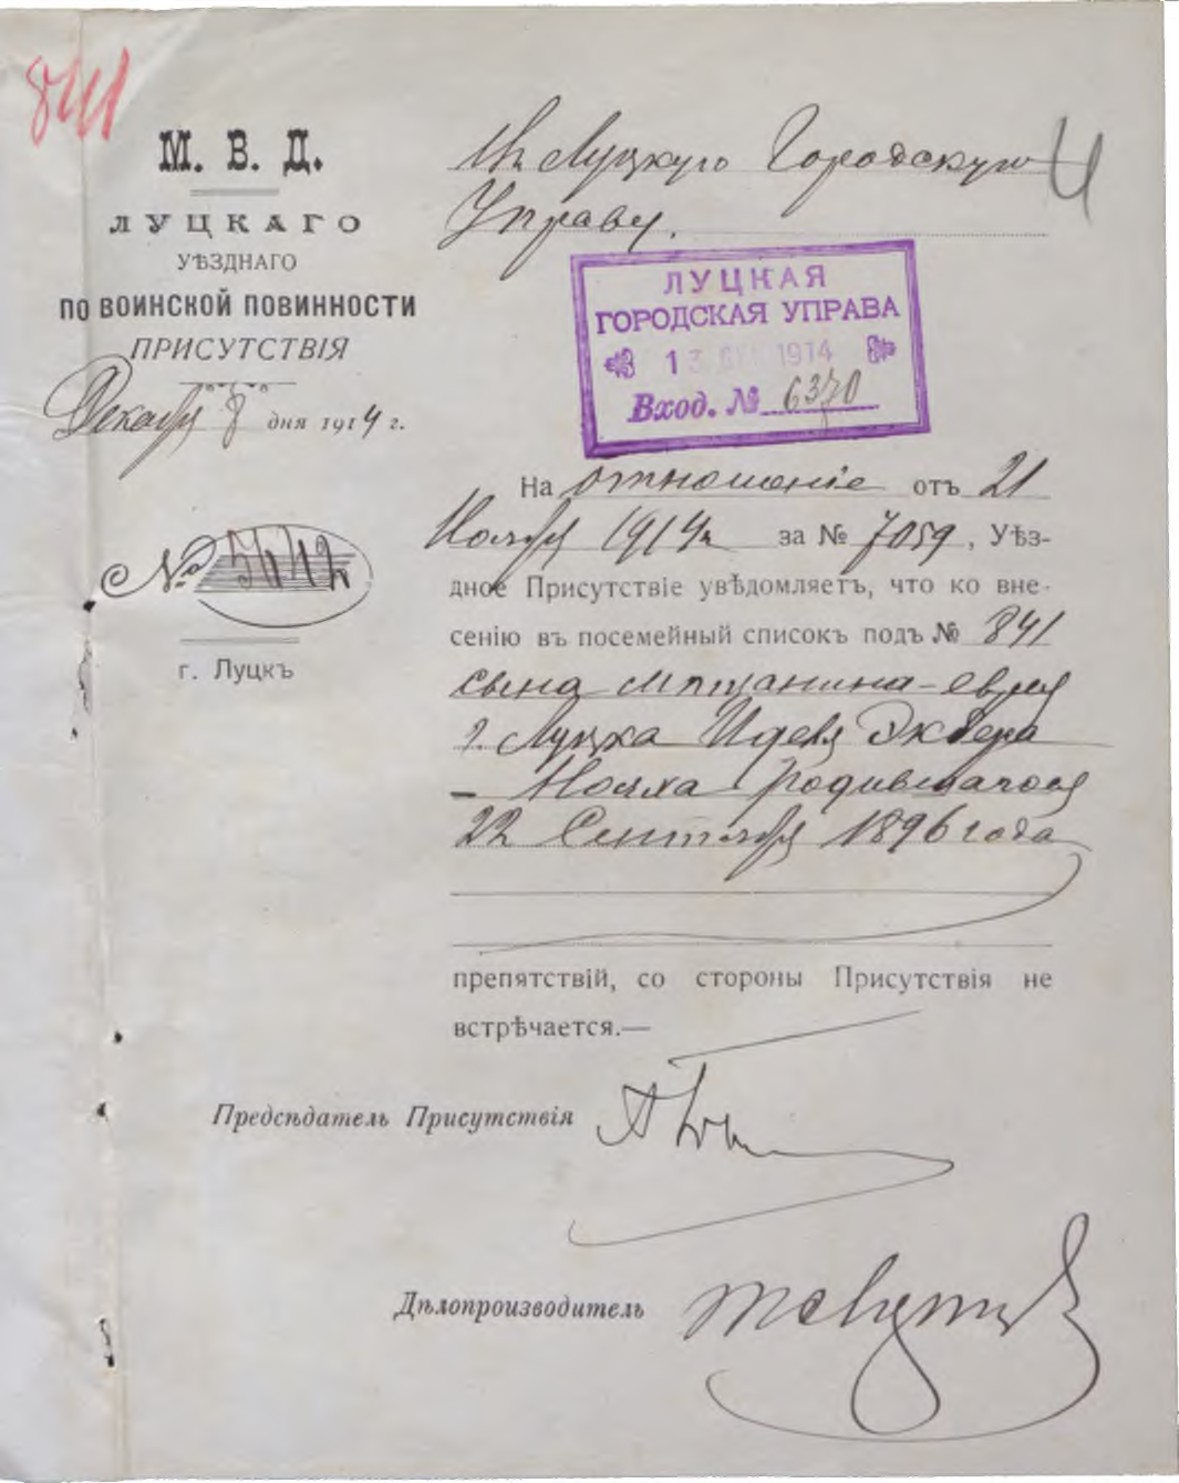 841
М. В. Д.
ЛУЦКАГО
УѢЗДНАГО
ПО ВОИНСКОЙ ПОВИННОСТИ
ПРИСУТСТВІЯ
Декабря 8 дня 1914 г.
№
г. Луцкъ
Въ Луцкую Городскую
Управу.
ЛУЦКАЯ
ГОРОДСКАЯ УПРАВА
1914
Вход. № 6370
На отношеніе отъ 21
Ноября 1914 г. за № 7059, Уѣз-
дное Присутствіе увѣдомляетъ, что ко вне-
сенію въ посемейный списокъ подъ № 841
сына мѣщанина-еврея
г. Луцка
– родившагося
22 Сентября 1896 года
препятствій, со стороны Присутствія не
встрѣчается.—
Предсѣдатель Присутствія
Дѣлопроизводитель